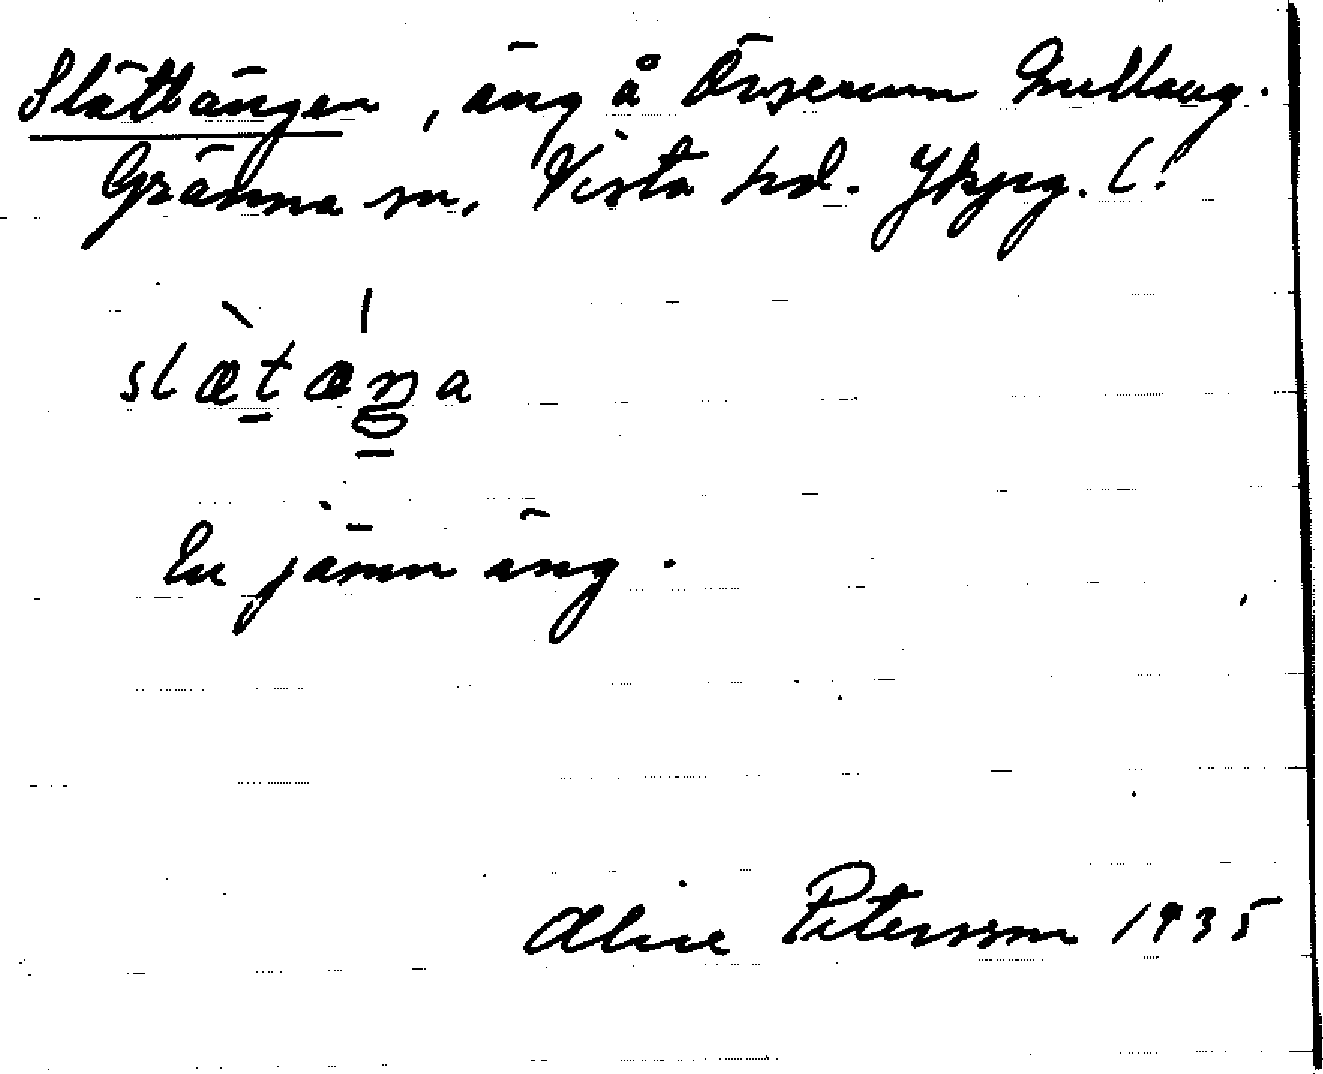 Slättängen, äng å Örserum Mellang.
Gränna sn, Vista hd. Jkpg. l.
slætæŋa
En jämn äng.
Petersson 1935